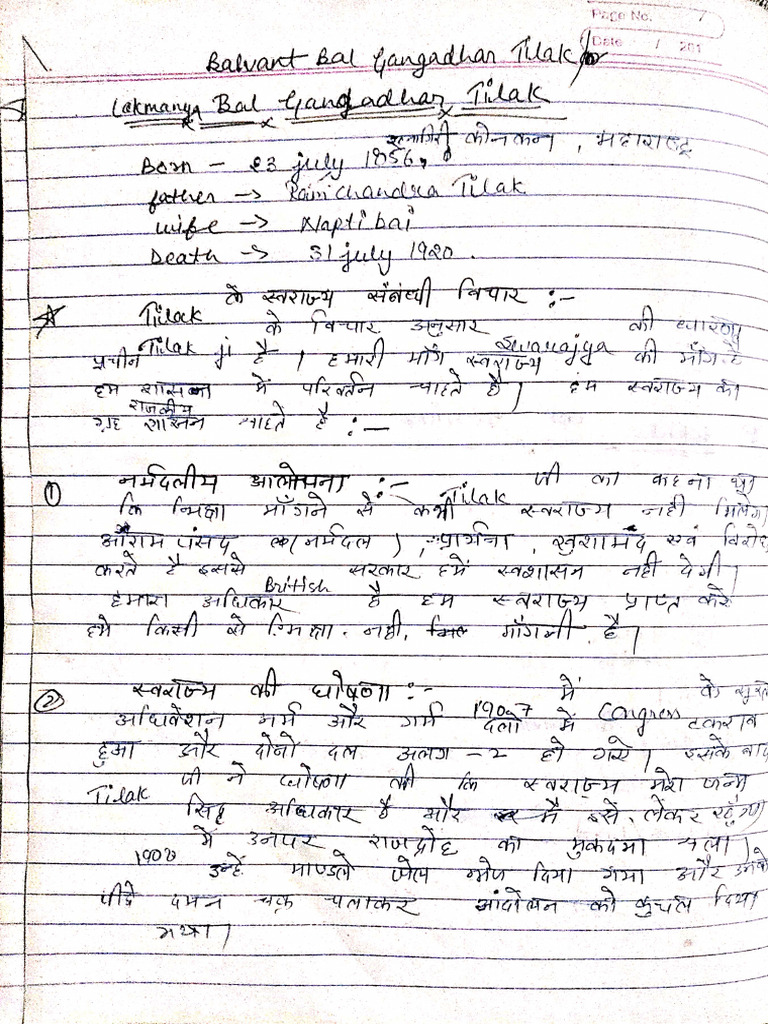 Page No. 7
Date / 201
Balvant Bal Gangadhar Tilak
Lokmanya Bal Gangadhar Tilak
रत्नागिरी कोनकन, महाराष्ट्र
Born - 23 july 1856,
father -> Ramchandra Tilak
wife ->
Death -> 31 july 1920.
के स्वराज्य संबंधी विचार :-
Tilak के विचार अनुसार Swarajya की धारणा
प्राचीन Tilak ji है। हमारी माँग स्वराज्य की माँग है
हम शासन में परिवर्तन चाहते है। हम स्वराज्य का
राजकीय
ग्रह शासन चाहते है :-
① नर्मदलीय आलोचना :- Tilak जी का कहना था
कि भिक्षा माँगने से कभी स्वराज्य नही मिलेगा
औराम पंसद (नर्मदल), प्रार्थना, खुशामद एवं विरोध
करते है इससे British सरकार हमें स्वशासन नही देगी।
हमारा अधिकार है हम स्वराज्य प्राप्त करे
हमे किसी से भिक्षा नही माँगनी है।
② स्वराज्य की घोषणा :- 1907 में Congress के सुरत
अधिवेशन नर्म और गर्म दलो में टकराव
हुआ और दोनो दल अलग-२ हो गये। इसके बाद
Tilak जी ने घोषणा की कि स्वराज्य मेरा जन्म
सिद्ध अधिकार है और मै इसे लेकर रहूँगा
1908 में उनपर राजद्रोह का मुकदमा चला।
उन्हें माण्डले जेल भेज दिया गया और उनके
पीछे दमन चक्र चलाकर आंदोलन को कुचल दिया
गया।